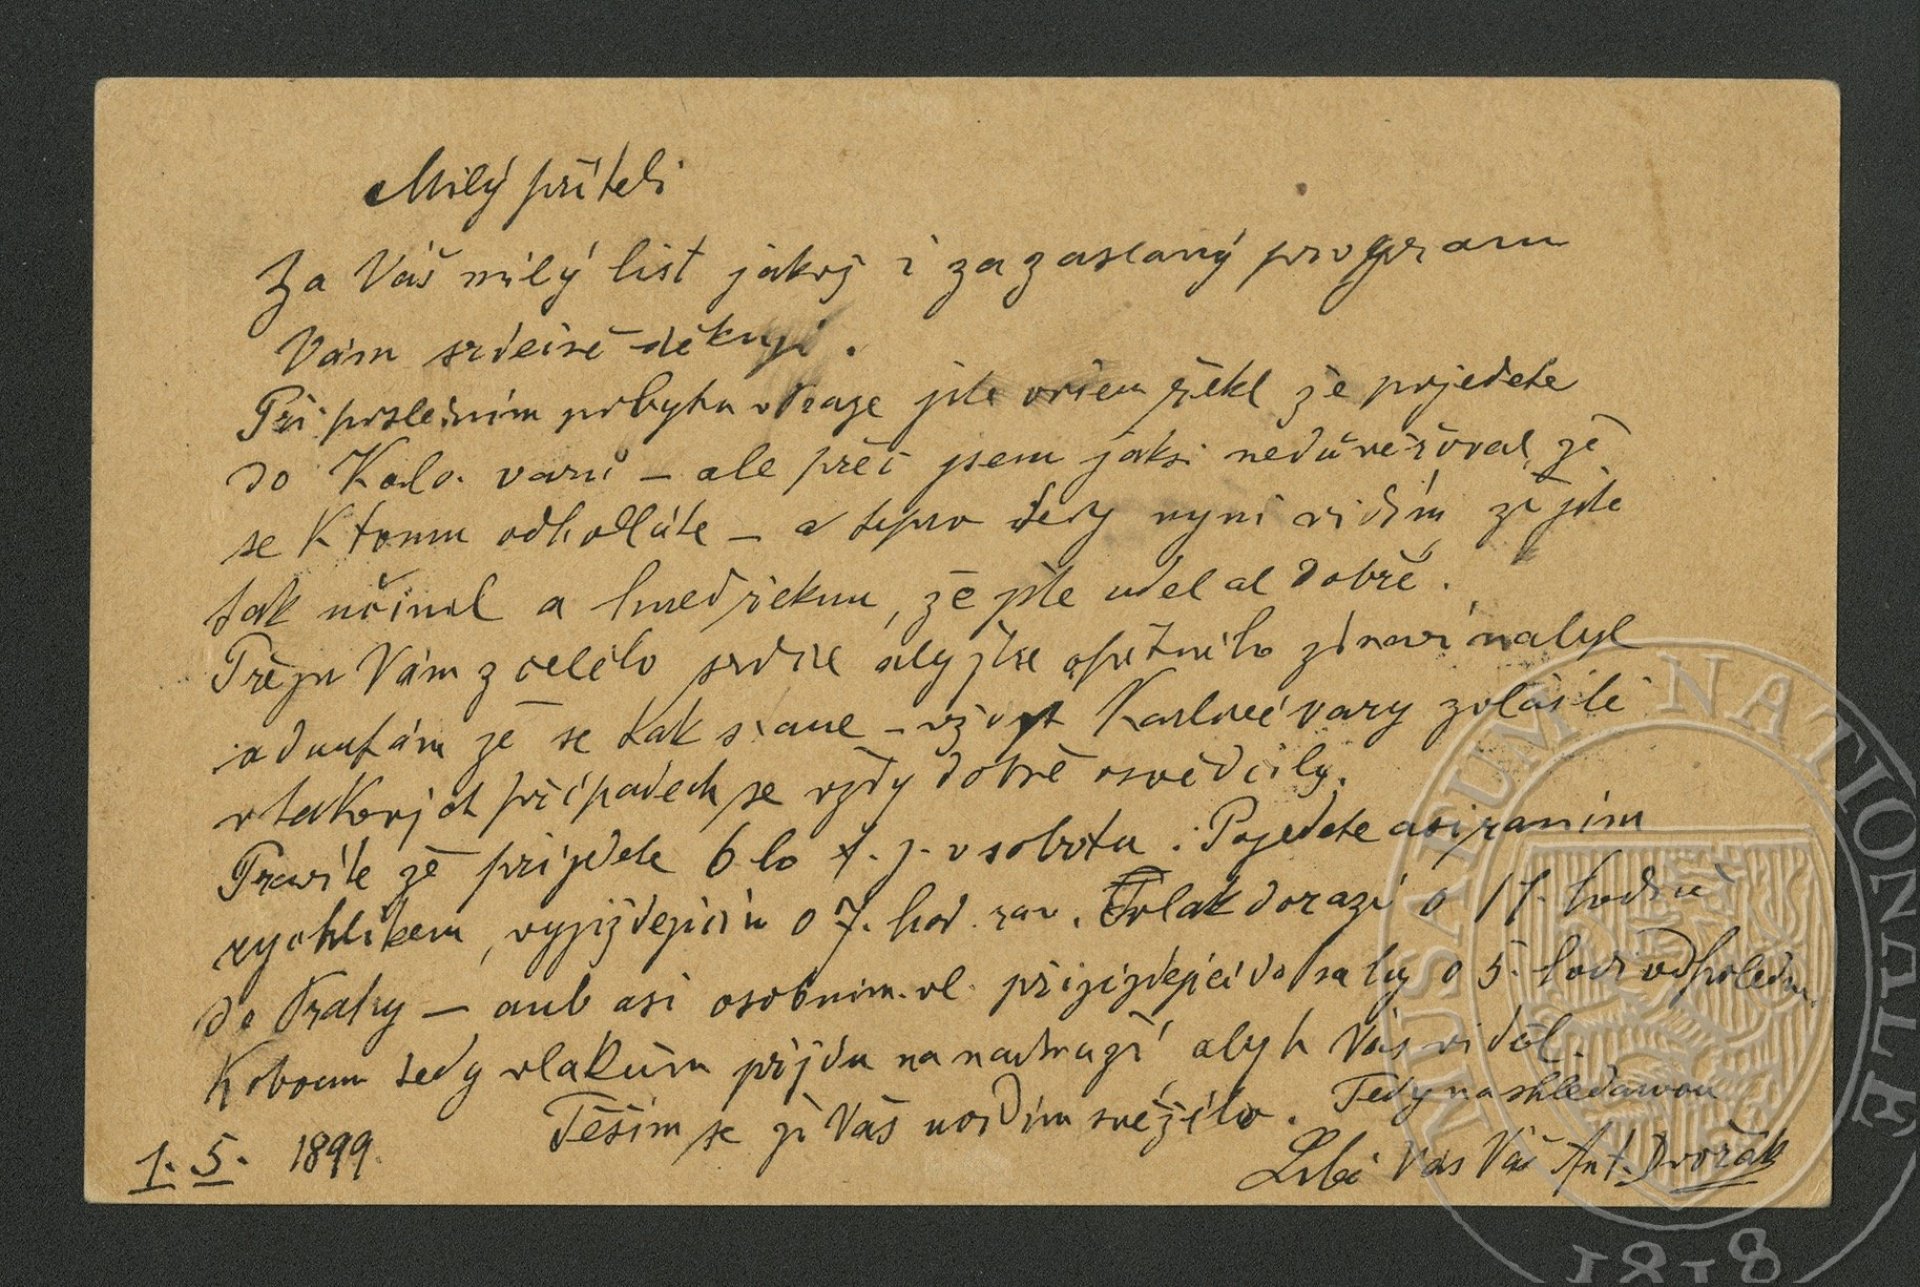 Milý příteli
Za Váš milý list jakož i za zaslaný program
Vám srdečně děkuji.
Při posledním pobytu v Praze jste ovšem řekl že pojedete
do Karlo. varů – ale přec jsem jaksi nedůvěřoval, že
se K tomu odhodláte – a teprv tedy nyní vidím, že jste
tak učinil a hned řeknu, že jste udělal dobře.
Přeju Vám z celého srdce abyjste opětného zdraví nabyl
a doufám že se tak stane – Karlové vary zvláště
v takových případech se vždy dobře osvědčily.
Pravíte že přijedete 6ho t. j. v sobotu. Pojedete asi ranním
rychlíkem, vyjíždějícím o 7. hod. ran. Vlak dorazí o 11. hodině
do Prahy – anb asi osobním. vl. přijíždějící do Prahy o 5. hod. odpoledn.
K oboum tedy vlakům příjdu na nádraží abych Vás viděl.
Těším se že Vás uvidím svěžího. Tedy na shledanou
1. 5. 1899. Líbá Vás Váš Ant. Dvořák
MUSAEUM NATIONALE
1818